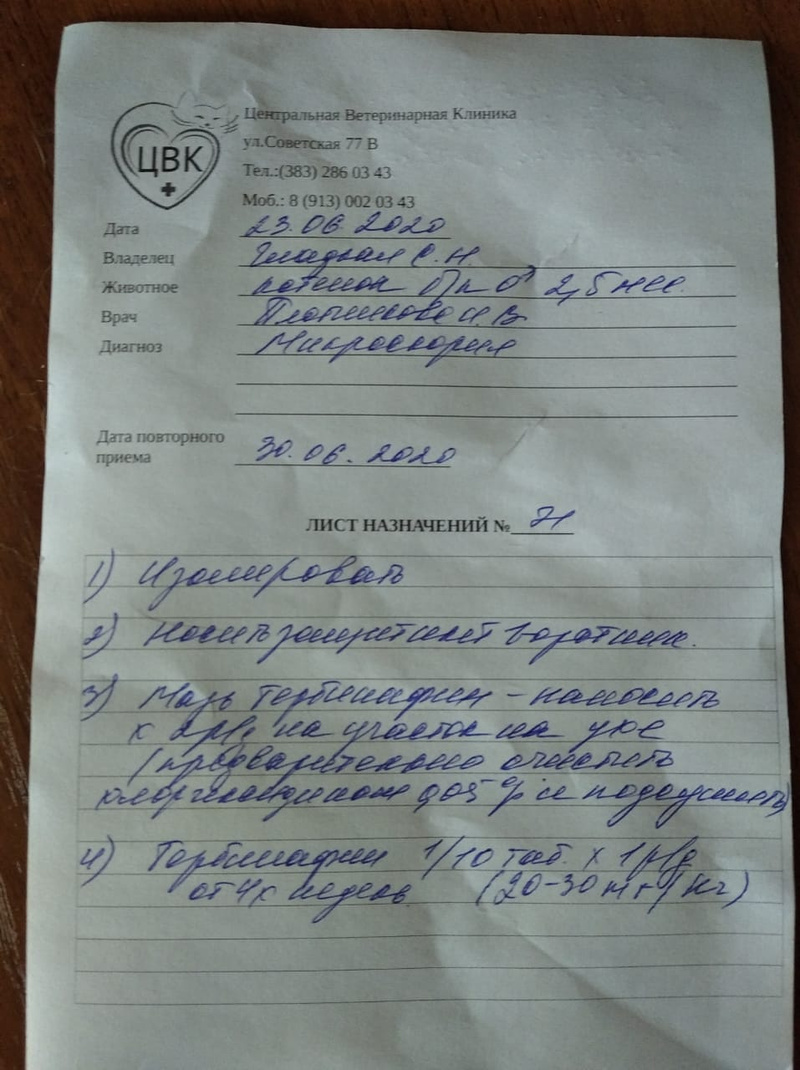 ЦВК
Центральная Ветеринарная Клиника
ул.Советская 77 В
Тел.:(383) 286 03 43
Моб.: 8 (913) 002 03 43
Дата 23.06.2020
Владелец Гладкая С. Н.
Животное котенок б/п ♂ 2,5 мес.
Врач Плотникова И. В.
Диагноз Микроспория
Дата повторного
приема 30.06.2020
ЛИСТ НАЗНАЧЕНИЙ №
1) Изолировать
2) Носить защитный воротник.
3) Мазь Тербинафин - наносить
х 2р/д на участок на ухе
(предварительно очистить
хлоргексидином 0,05 % и подсушить)
4) Тербинафин 1/10 таб. х 1р/д
от 4х недель (20-30 мг/кг)